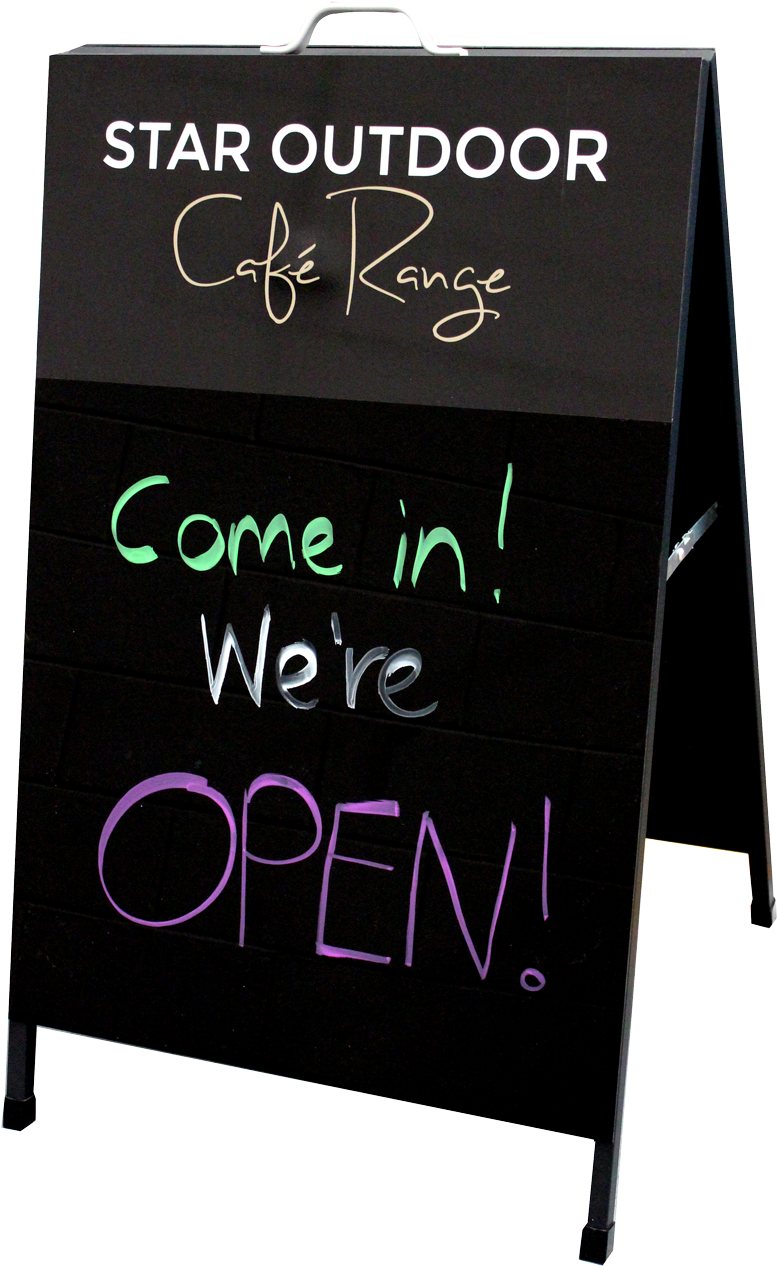 STAR OUTDOOR
Café Range
Come in!
We're
OPEN!